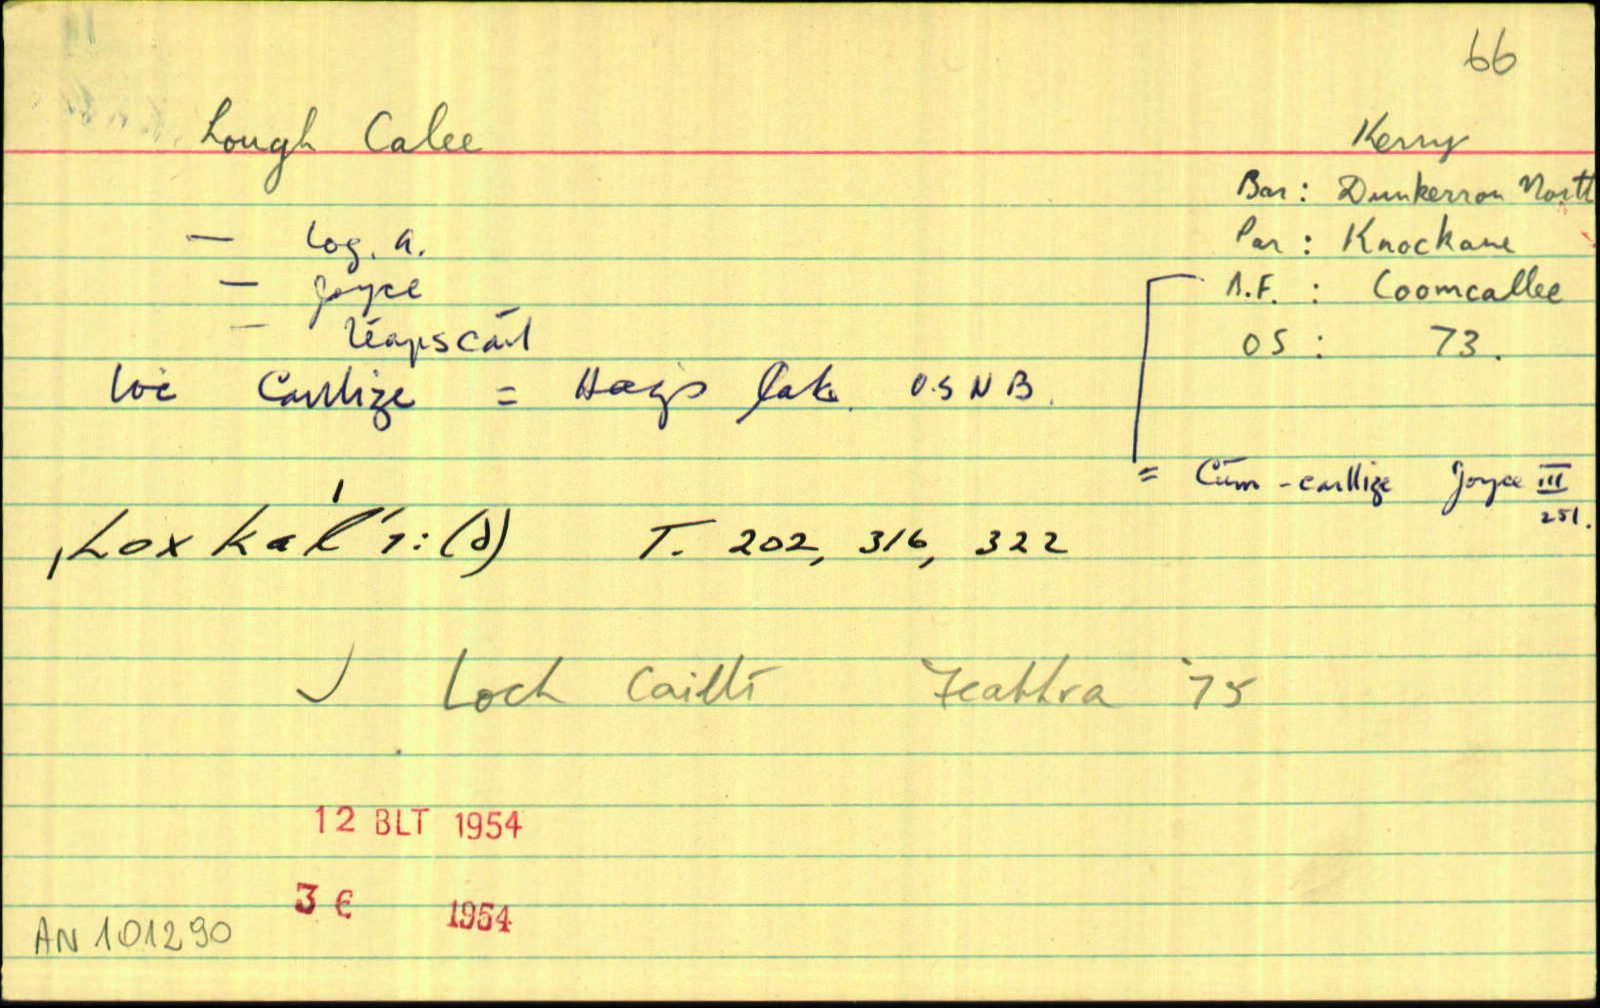 66
Lough Calee
Kerry
Bar: Dunkerron North
Par: Knockane
— Log. A.
— Joyce
B.F. : Coomcallee
— léarscáil
OS: 73.
loċ Caillige = Hag's lake. O.S N B.
= Cúm-caillige Joyce III
251.
ˌLox ka'l′ı:(ə) T. 202, 316, 322
✓ Loch Caillí Feabhra '75
12 BLT 1954
3 € 1954
AN 101290